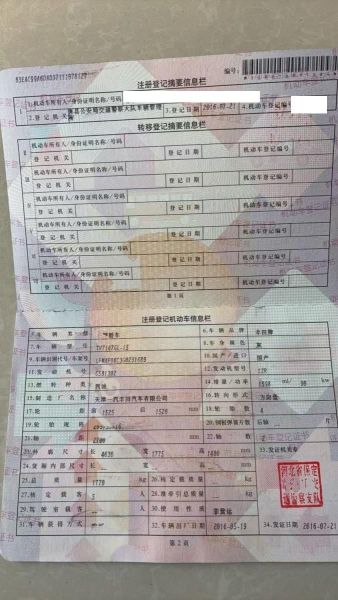 注册登记摘要信息栏
编号:
1.机动车所有人/身份证明名称/号码
2.登记机关 县公安局交通警察大队车辆管理 3.登记日期 2016-07-21 4.机动车登记编号
转移登记摘要信息栏
机动车所有人/身份证明名称/号码
登记机关 登记日期 机动车登记编号
机动车所有人/身份证明名称/号码
登记机关 登记日期 机动车登记编号
机动车所有人/身份证明名称/号码
登记机关 登记日期 机动车登记编号
机动车所有人/身份证明名称/号码
登记机关 登记日期 机动车登记编号
机动车所有人/身份证明名称/号码
登记机关 登记日期 机动车登记编号
第1页
注册登记机动车信息栏
5.车辆类型 轿车 6.车辆品牌
7.车辆型号 8.车身颜色 灰
9.车辆识别代号/车架号 10.国产/进口 国产
11.发动机号 12.发动机型号
13.燃料种类 汽油 14.排量/功率 1598 ml kw
15.制造厂名称 天津一汽丰田汽车有限公司 16.转向形式 方向盘
17.轮距 前 1525 后 1520 mm 18.轮胎数 4
19.轮胎规格 20.钢板弹簧片数 后轴 片
21.轴距 mm 22.轴数 2
23.外廓尺寸 长 4630 宽 1775 高 1480 mm 33.发证机关章
24.货厢内部尺寸 长 宽 高 mm
25.总质量 1770 kg 26.核定载质量 kg
27.核定载客 5 人 28.准牵引总质量 kg
29.驾驶室载客 人 30.使用性质 非营运
31.车辆获得方式 32.车辆出厂日期 2016-05-19 34.发证日期 2016-07-21
第2页